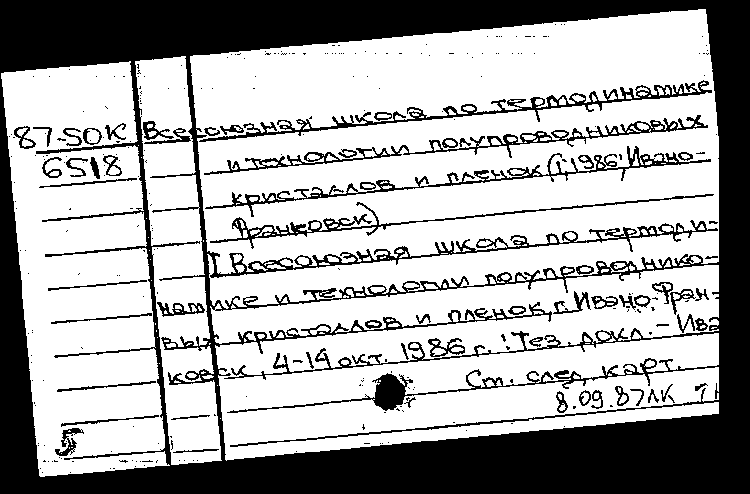 87-5OK Всесоюзная школа по термодинамике
6518 и технологии полупроводниковых
кристаллов и пленок (I; 1986; Ивано-
Франковск).
I Всесоюзная школа по термоди-
намике и технологии полупроводнико-
вых кристаллов и пленок, г. Ивано-Фран-
ковск, 4-14 окт. 1986 г.: Тез. докл. - Ива
См. след. карт.
5 8.09.87ЛК